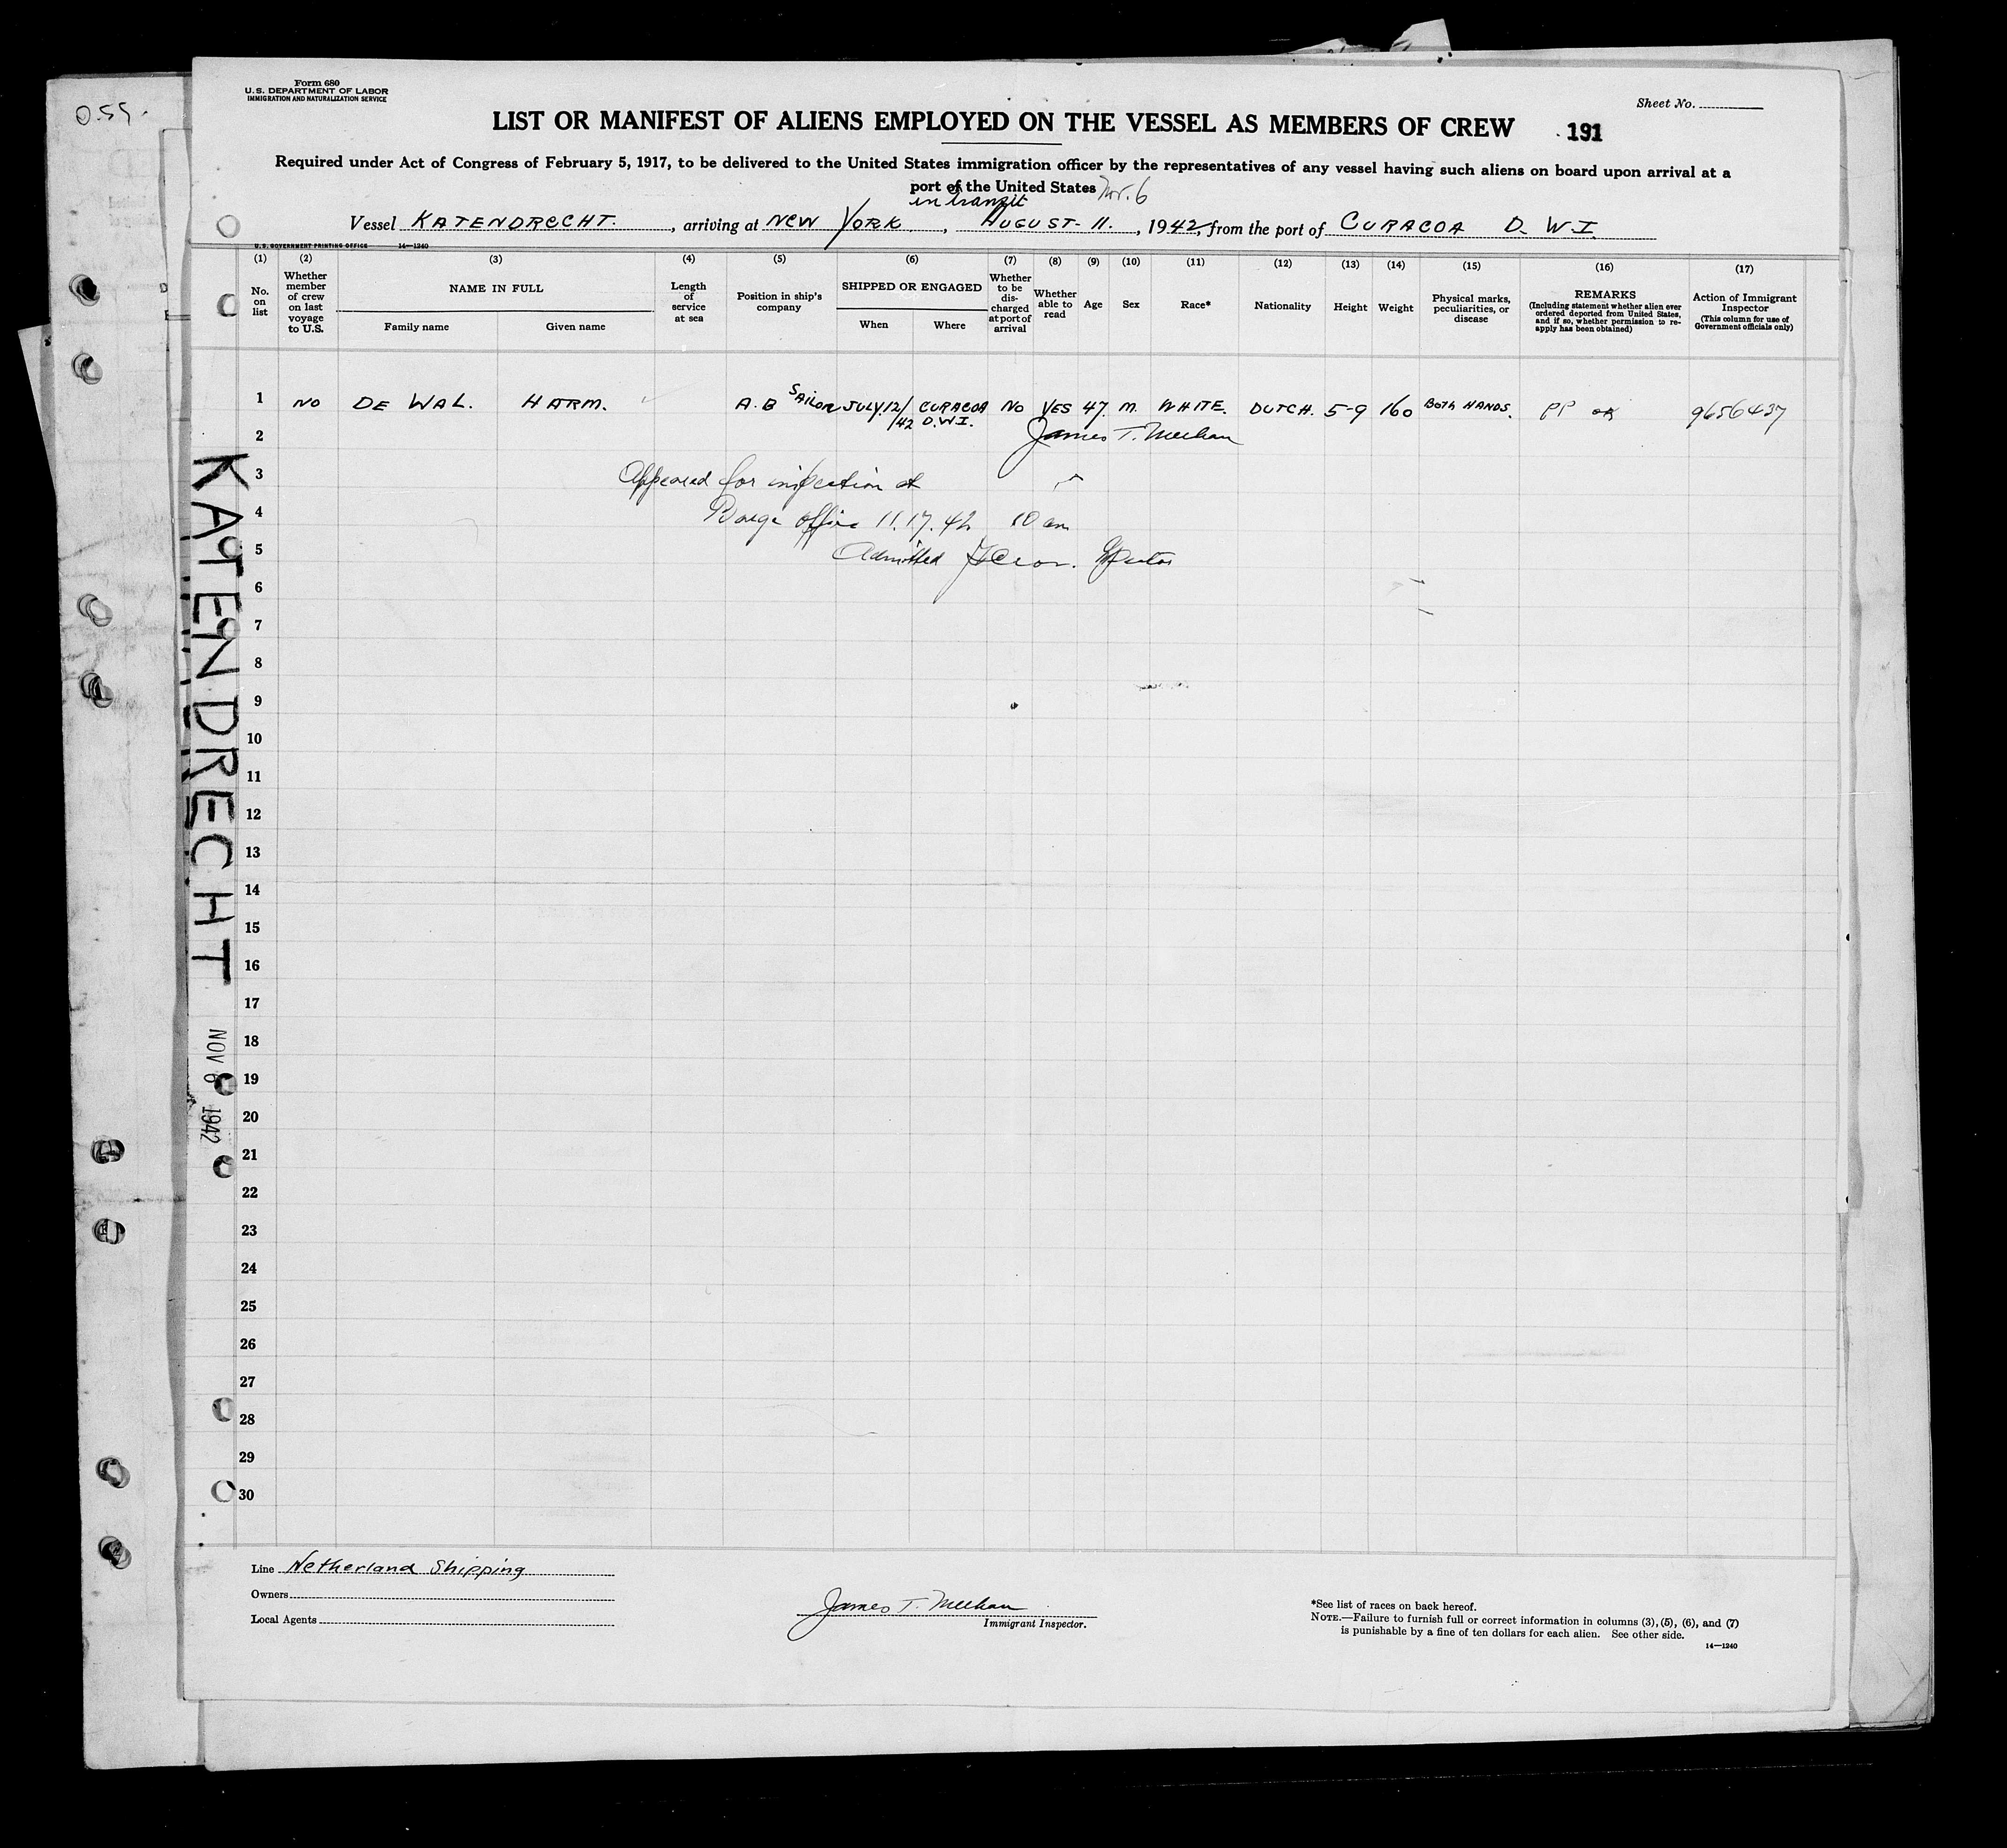 O.55.
Form 680
U.S. DEPARTMENT OF LABOR
IMMIGRATION AND NATURALIZATION SERVICE
Sheet No.
LIST OR MANIFEST OF ALIENS EMPLOYED ON THE VESSEL AS MEMBERS OF CREW
191
Required under Act of Congress of February 5, 1917, to be delivered to the United States immigration officer by the representatives of any vessel having such aliens on board upon arrival at a
port of the United States Nov. 6
in transit
Vessel KATENDRECHT., arriving at NEW YORK, AUGUST- 11., 1942, from the port of CURACOA D.W.I.
U.S. GOVERNMENT PRINTING OFFICE 14—1240
(1) (2) (3) (4) (5) (6) (7) (8) (9) (10) (11) (12) (13) (14) (15) (16) (17)
No. on list
Whether member of crew on last voyage to U.S.
NAME IN FULL
Family name
Given name
Length of service at sea
Position in ship's company
SHIPPED OR ENGAGED
When
Where
Whether to be discharged at port of arrival
Whether able to read
Age
Sex
Race*
Nationality
Height
Weight
Physical marks, peculiarities, or disease
REMARKS
(Including statement whether alien ever ordered deported from United States, and if so, whether permission to reapply has been obtained)
Action of Immigrant Inspector
(This column for use of Government officials only)
1 NO DE WAL. HARM. A.B SAILOR JULY 12/ /42 CURACOA D.W.I. NO YES 47 M. WHITE. DUTCH. 5-9 160 BOTH HANDS. PP OK 9656437
2 James T. Meehan
3 Appeared for inspection at
4 Barge office 11.17.42 10 am
5 Admitted
6
7
8
9
10
11
12
13
14
15
16
17
18
19
20
21
22
23
24
25
26
27
28
29
30
KATENDRECHT
NOV 6 1942
Line Netherland Shipping
Owners
Local Agents
James T. Meehan
Immigrant Inspector.
*See list of races on back hereof.
NOTE.—Failure to furnish full or correct information in columns (3), (5), (6), and (7)
is punishable by a fine of ten dollars for each alien. See other side.
14—1240